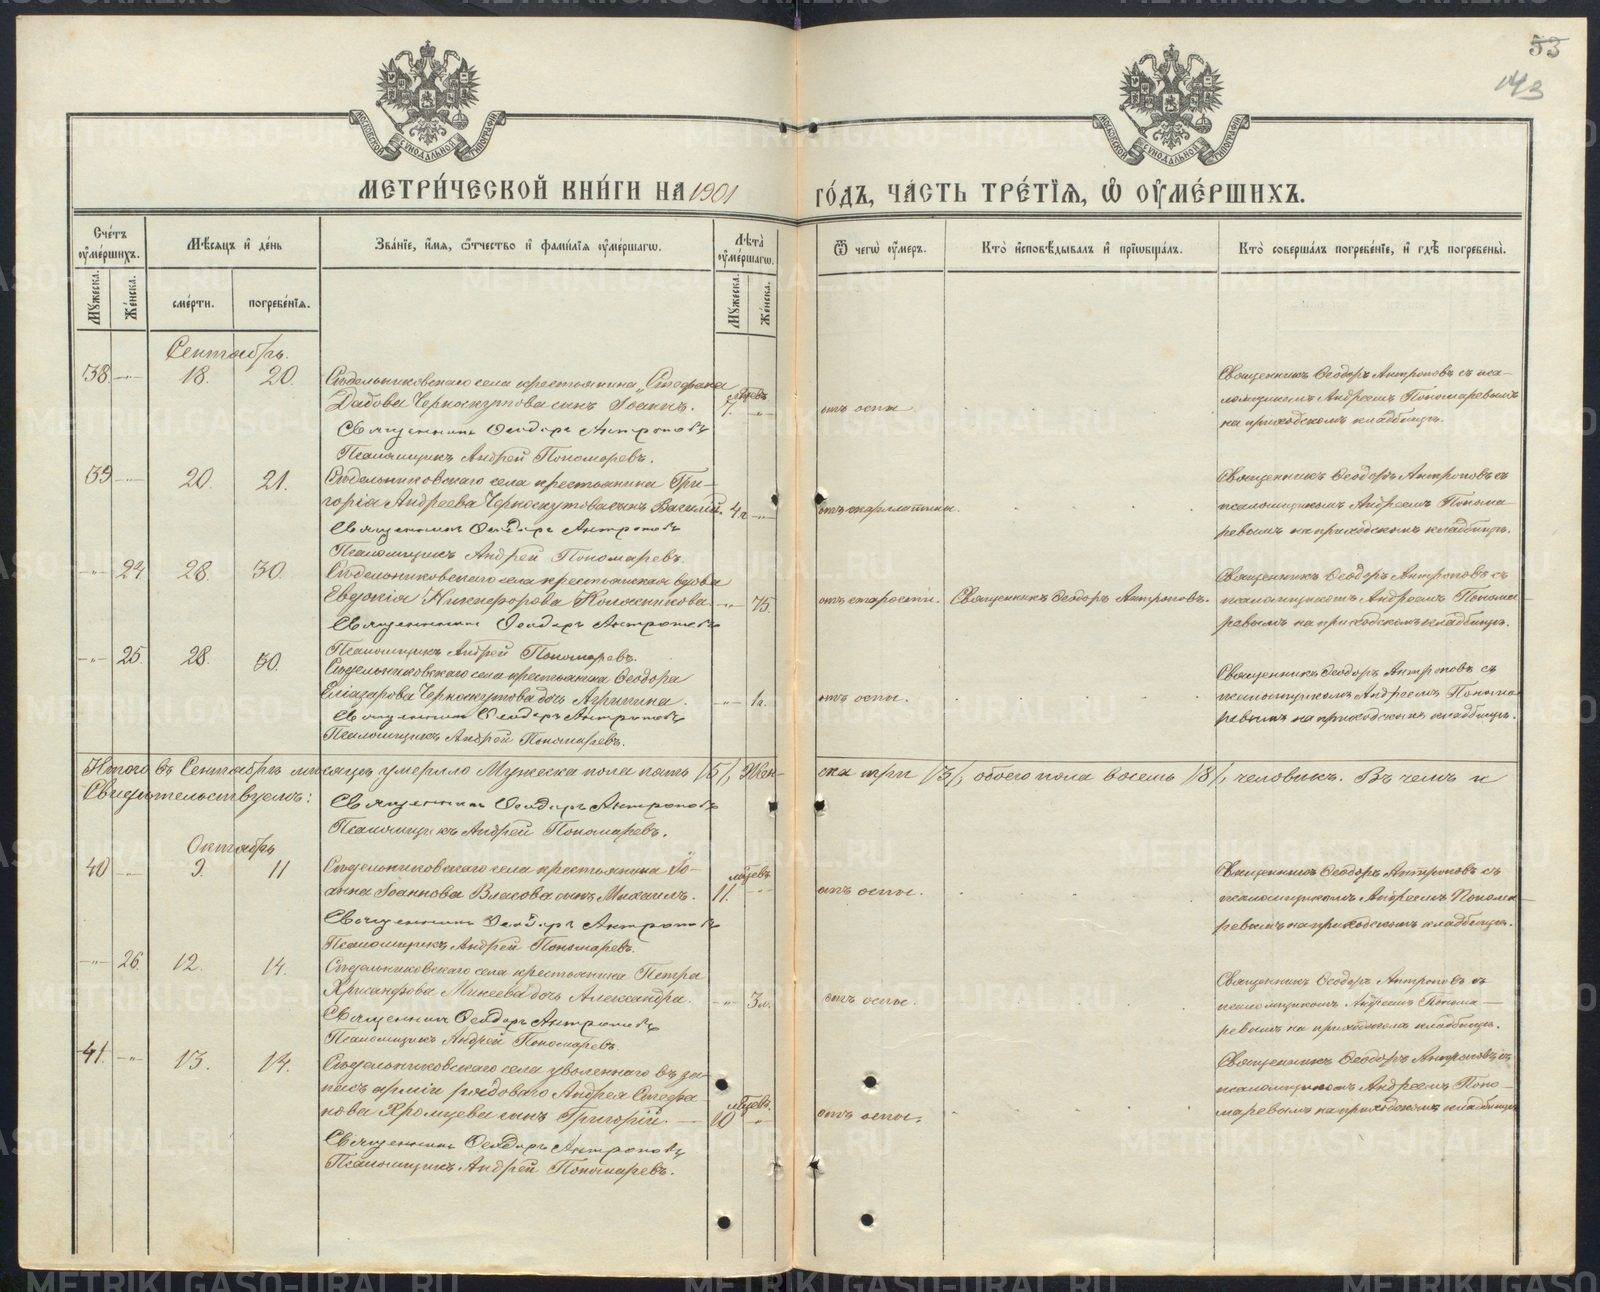 53
143
МОСКОВСКОЙ СѴНОДАЛЬНОЙ ТИПОГРАФІИ
МОСКОВСКОЙ СѴНОДАЛЬНОЙ ТИПОГРАФІИ
МЕТРИ́ЧЕСКОЙ КНИ́ГИ НА 1901 ГО́ДЪ, ЧА́СТЬ ТРЕ́ТІѦ, Ѡ ОУ҆МЕ́РШИХЪ.
Сче́тъ оу҆ме́ршихъ.
Мꙋжеска. Же́нска.
Мѣсяцъ и҆ де́нь
сме́рти. погребе́нїѧ.
Зва́нїе, и҆́мѧ, ѻ҆́тчество и҆ фами́лїѧ оу҆ме́ршагѡ.
Лѣта̀ оу҆ме́ршагѡ.
Мꙋжеска. Же́нска.
Ѿ чегѡ̀ оу҆́меръ.
Кто̀ и҆сповѣ́дывалъ и҆ прїѡбща́лъ.
Кто̀ соверша́лъ погребе́нїе, и҆ гдѣ̀ погребены̀.
Сентябрь.
38 -„- 18. 20. Сѣдельниковскаго села крестьянина Стефана
Давова Черноскутова сынъ Іоаннъ. 7. мѣсяцевъ -„- отъ оспы
Священникъ Ѳеодоръ Антроповъ
Псаломщикъ Андрей Пономаревъ.
Священникъ Ѳеодоръ Антроповъ съ пса-
ломщикомъ Андреемъ Пономаревымъ
на приходскомъ кладбищѣ.
39 -„- 20. 21. Сѣдельниковскаго села крестьянина Гри-
горія Андреева Черноскутова сынъ Василій. 4 г. -„- отъ скарлатина.
Священникъ Ѳеодоръ Антроповъ
Псаломщикъ Андрей Пономаревъ.
Священникъ Ѳеодоръ Антроповъ съ
псаломщикомъ Андреемъ Понома-
ревымъ на приходскомъ кладбищѣ.
-„- 24 28. 30. Сѣдельниковскаго села крестьянская вдова
Евдокія Никифорова Колясникова. -„- 75 отъ старости. Священникъ Ѳеодоръ Антроповъ.
Священникъ Ѳеодоръ Антроповъ
Псаломщикъ Андрей Пономаревъ.
Священникъ Ѳеодоръ Антроповъ съ
псаломщикомъ Андреемъ Понома-
ревымъ на приходскомъ кладбищѣ.
-„- 25. 28. 30. Сѣдельниковскаго села крестьянина Ѳеодора
Еліазарова Черноскутова дочь Агрипина. -„- 1 г. отъ оспы.
Священникъ Ѳеодоръ Антроповъ
Псаломщикъ Андрей Пономаревъ.
Священникъ Ѳеодоръ Антроповъ съ
псаломщикомъ Андреемъ Понома-
ревымъ на приходскомъ кладбищѣ.
Итого въ Сентябрѣ мѣсяцѣ умерло Мужеска пола пять /5/, Жен-ска три /3/, обоего пола восемь /8/, человѣкъ. Въ чемъ и
Свидѣтельствуемъ: Священникъ Ѳеодоръ Антроповъ
Псаломщикъ Андрей Пономаревъ.
Октябрь
40 -„- 9. 11 Сѣдельниковскаго села крестьянина Іо-
анна Іоаннова Власова сынъ Михаилъ. 11. мѣсяцевъ -„- отъ оспы.
Священникъ Ѳеодоръ Антроповъ
Псаломщикъ Андрей Пономаревъ.
Священникъ Ѳеодоръ Антроповъ съ
псаломщикомъ Андреемъ Понома-
ревымъ на приходскомъ кладбищѣ.
-„- 26. 12. 14. Сѣдельниковскаго села крестьянина Петра
Хрисанфова Микеева дочь Александра. -„- 3 м. отъ оспы.
Священникъ Ѳеодоръ Антроповъ
Псаломщикъ Андрей Пономаревъ.
Священникъ Ѳеодоръ Антроповъ съ
псаломщикомъ Андреемъ Понома-
ревымъ на приходскомъ кладбищѣ.
41. -„- 13. 14. Сѣдельниковскаго села уволеннаго въ за-
пасъ арміи рядоваго Андрея Стефа-
нова Хромцева сынъ Григорій. 10 мѣсяцевъ -„- отъ оспы.
Священникъ Ѳеодоръ Антроповъ
Псаломщикъ Андрей Пономаревъ.
Священникъ Ѳеодоръ Антроповъ съ
псаломщикомъ Андреемъ Поно-
маревымъ на приходскомъ кладбищѣ
METRIKI.GASO-URAL.RU